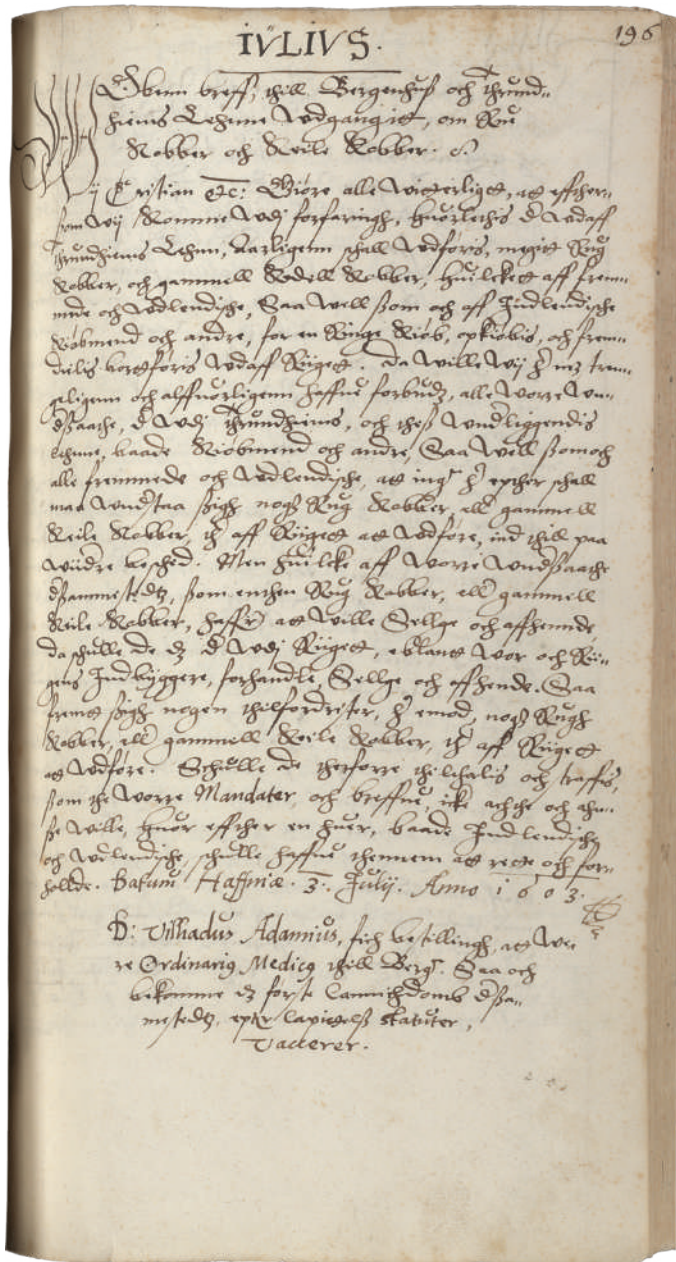 IVLIVS.
196
Obenn breff, thill Bergenhuß och Thrund-
hiems Lehnne Wdgangigt, om Rue
Kobber och Keile Kobber.
Wij Cristian etc: Giöre alle witterligt, at effther-
som Wij Komme Wdj forfaringh, huorledis der Wdaff
Thrundhiems Lehnn, Aarligenn schall Wdföris, megit Rug
Kobber, och gammell Kedell Kobber, huilcket aff frem-
mde och Wdlendische, Saa well ßom och aff Indlendische
Kiöbmend och andre, for en Ringe Kiöb, opkiöbis, och frem-
dielis bortföris Wdaff Riiget. Da wille Wij her met stren-
geligenn och alffuorligenn haffue forbudt, alle Worre Wn-
dersaathe, der Wdj Thrundhiems, och theß Wnderliggendis
lehnne, baade Kiöbmend och andre, Saa Well ßom och
alle fremmede och Wdlendische, at ingen her epther schall
maa Wnderstaa ßigh noget Rug Kobber, eller gammell
Keile Kobber, ther aff Riiget at Wdföre, ind thill paa
widre besched. Men huilcke aff Worre Wndersaathe
dersammestedtz, ßom enthen Rug Kobber, eller gammell
Keile Kobber, haffuer at Wille Sellge och affhennde,
da schulle de det der Wdj Riiget, iblant Wor och Rii-
gens Indbyggere, forhandle, Sellge och affhende. Saa
fremt ßigh nogen thilfordrister, her emod, noget Rugh
Kobber, eller gammell Keile Kobber, ther aff Riiget
at Wdföre. Schulle de therforre thiltalis och straffis,
ßom the Worre Mandater och breffue, icke achthe och ahn-
se Wille, huor effther en huer, baade Indlendische
och Wdlendische, schulle haffue thennem at rette och for-
hollde. Datum Haffniæ. 3. Julij. Anno 1603.
D: Villiadus Adamius, fich bestillingh, at Wee
re Ordinarius Medicus thill Bergen. Saa och
bekomme det förste Cannichdomb dersa-
mestedtz, epter Capitels Statuter,
Vacerer.